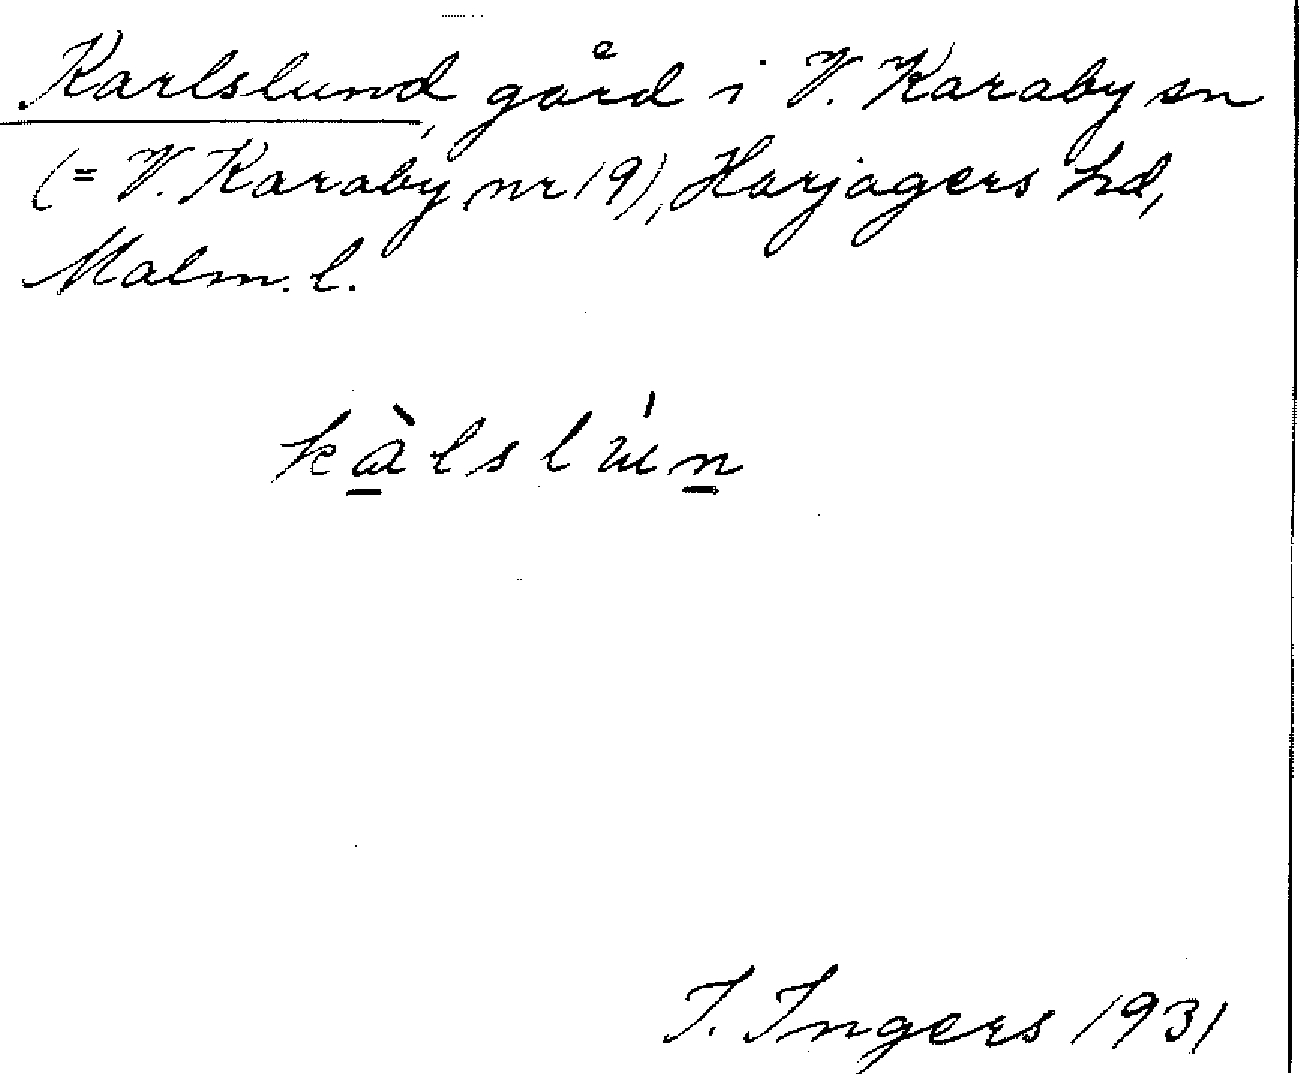 Karlslund, gård i V. Karaby sn
(= V. Karaby nr 19), Harjagers hd,
Malm. l.
kàlslún
I. Ingers 1931